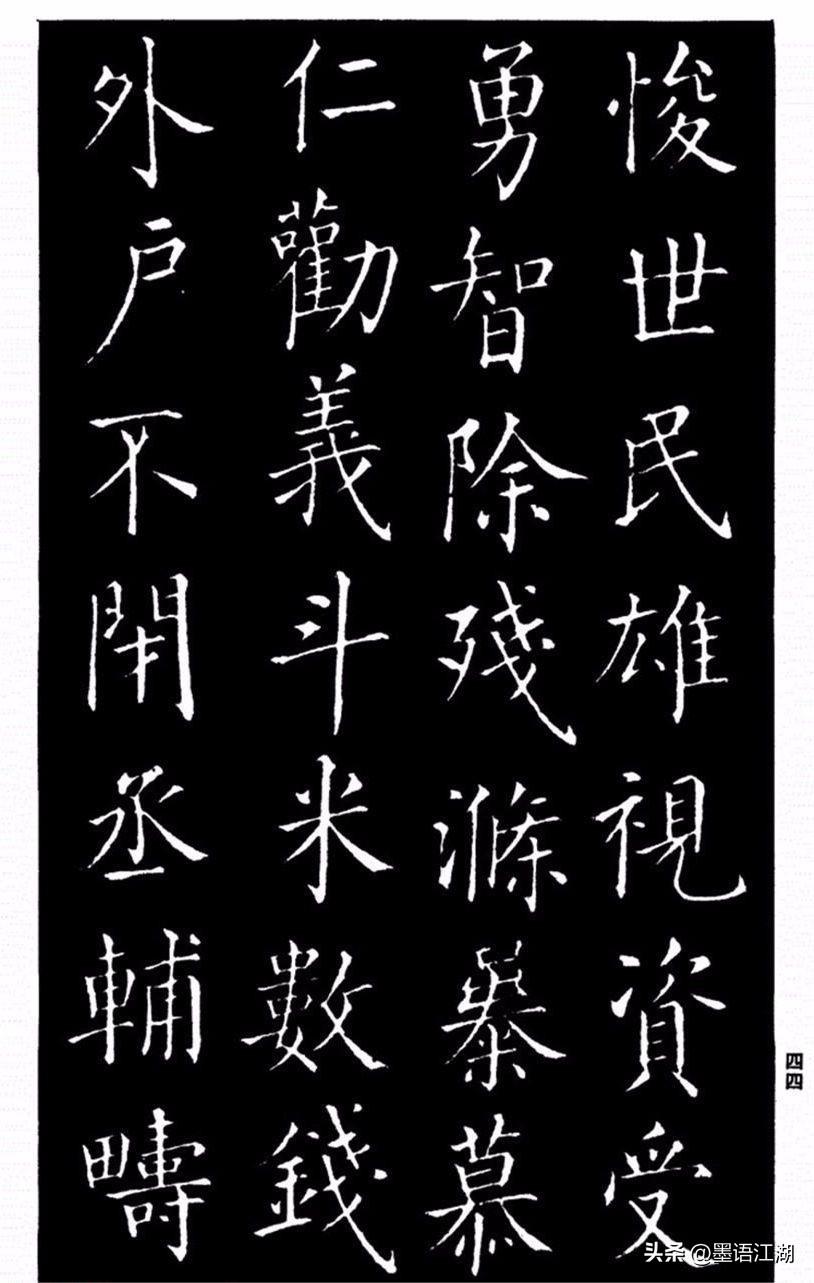 悛世民雄視資受
勇智除殘滌暴慕
仁勸義斗米數錢
外戶不閉丞輔疇
四四
头条@墨语江湖